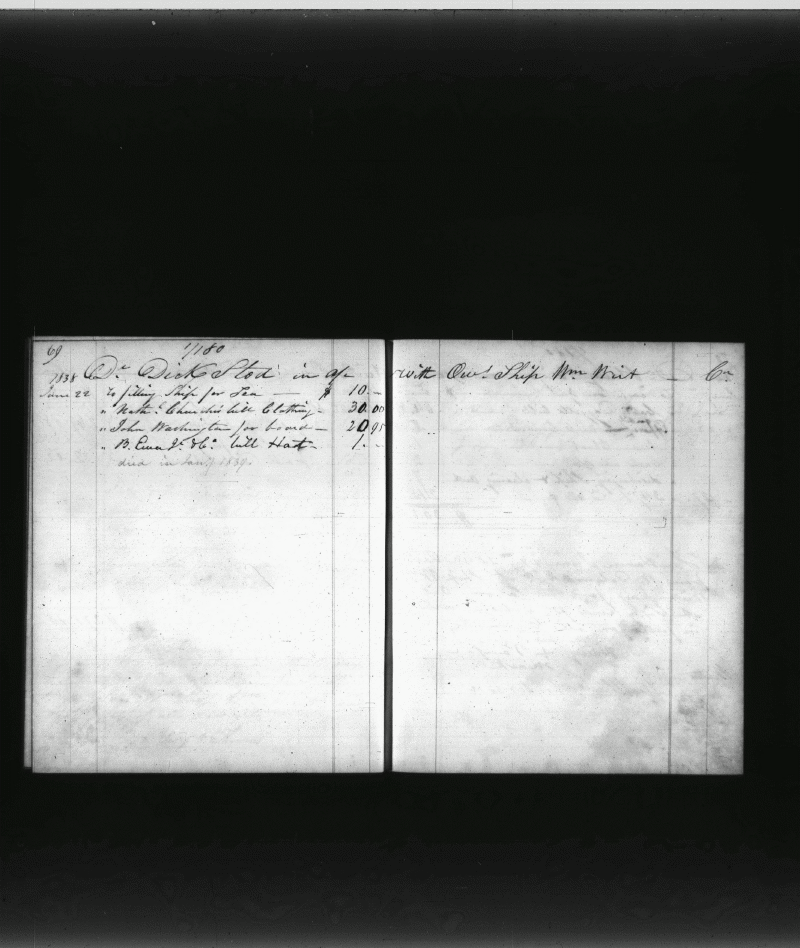 69
1/180
1838 Dr. Dick Stod in a/c with Ows. Ship Wm Wirt — Cr
June 22 To fitting Ship for Sea — $ 10.–
" Nathl. Churchs bill Clothing – 30.00
" John Washington for board – 20.95
" B. & Co. bill Hat – 1.–
died in Jany. 1839.